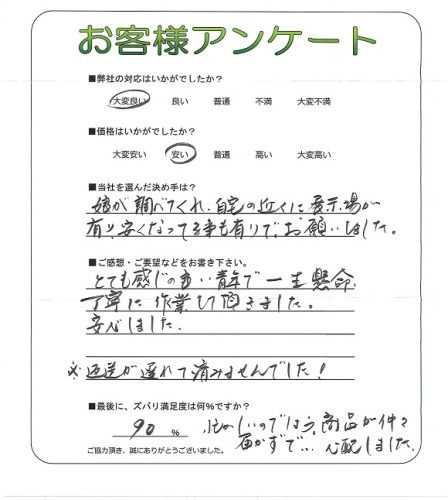 お客様アンケート
■弊社の対応はいかがでしたか？
大変良い 良い 普通 不満 大変不満
■価格はいかがでしたか？
大変安い 安い 普通 高い 大変高い
■当社を選んだ決め手は？
娘が調べてくれ、自宅の近くに展示場が
有り安くなってる事も有りで、お願いしました。
■ご感想・ご要望などをお書き下さい。
とても感じの良い青年で一生懸命、
丁寧に作業して頂きました。
安心しました、
※返送が遅れて済みませんでした！
■最後に、ズバリ満足度は何％ですか？
90 ％ 忙がしいのでは、商品が仲々
届かずで… 心配しました、
ご協力頂き、誠にありがとうございました。